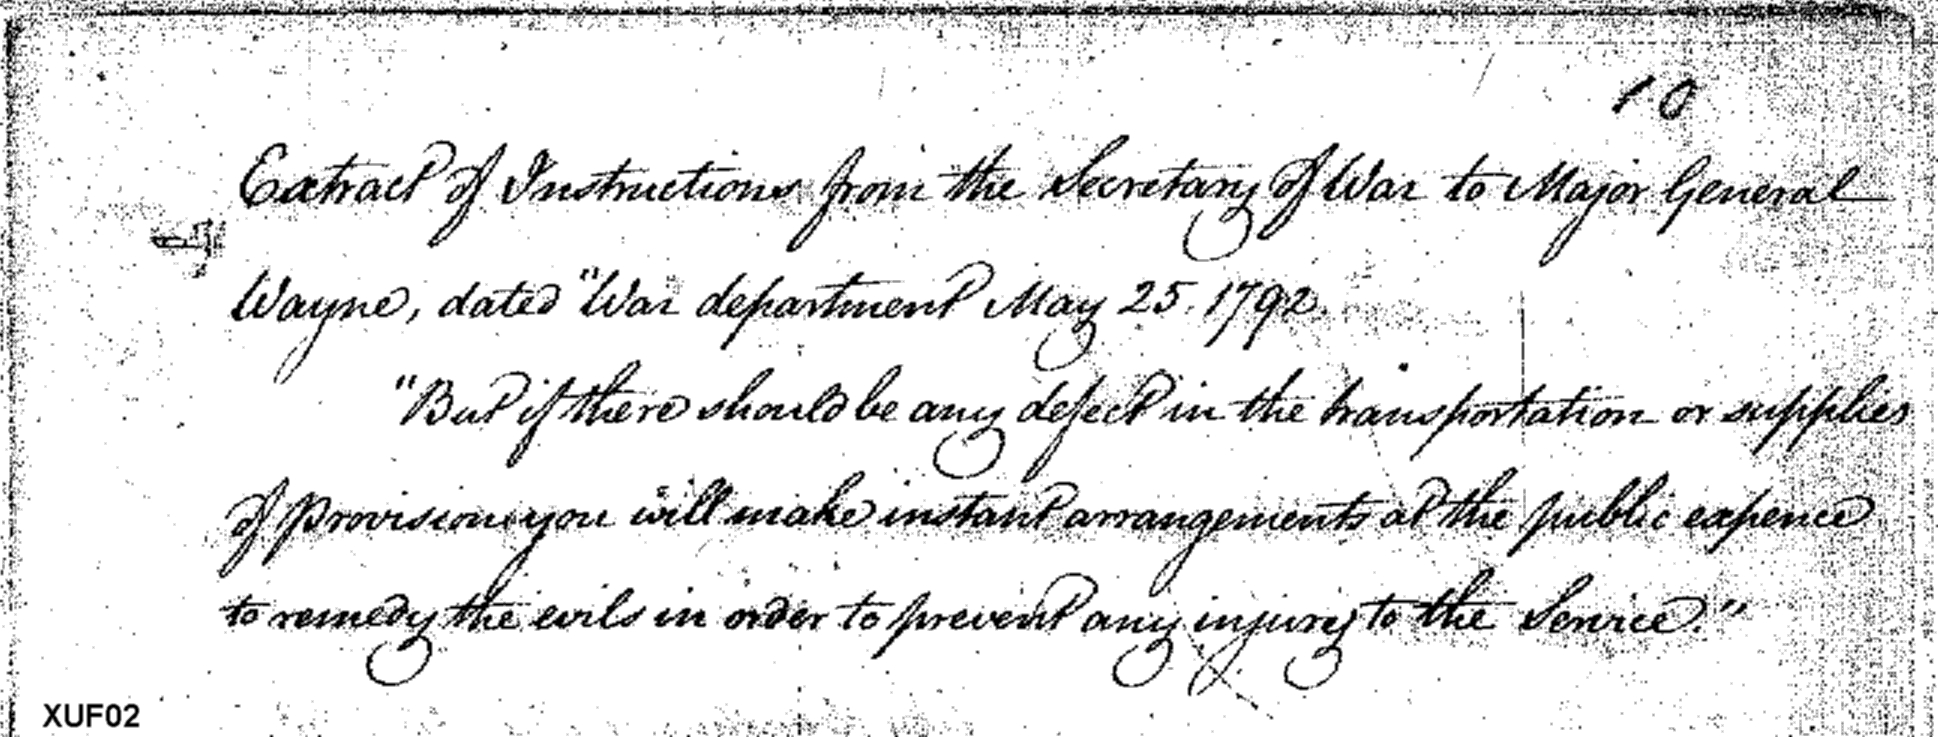 10
Extract of Instructions from the Secretary of War to Major General
Wayne, dated "War department May 25. 1792.
"But if there should be any defect in the transportation or supplies
of provision you will make instant arrangements at the public expence
to remedy the evils in order to prevent any injury to the Service."
XUF02